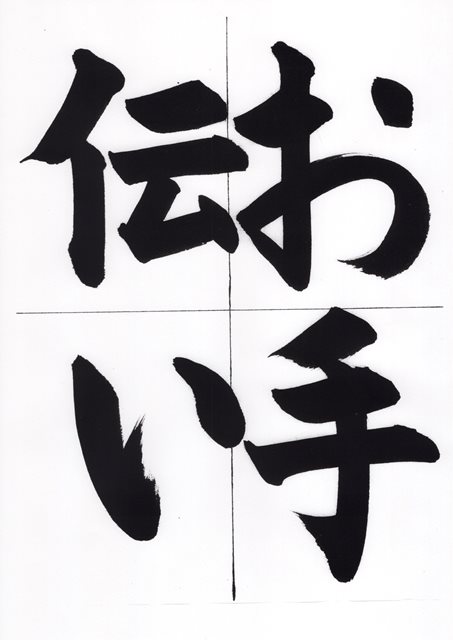 お手
伝い